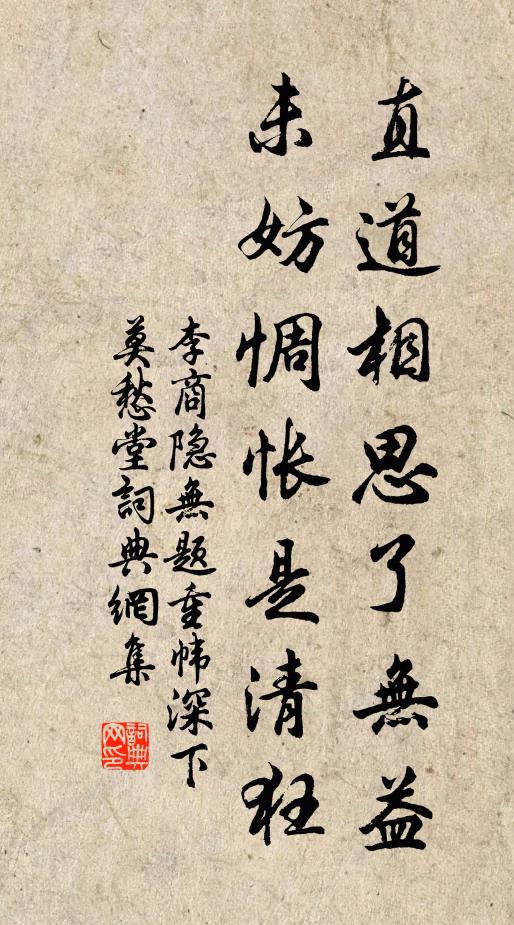 直道相思了無益
未妨惆怅是清狂
李商隐無题重帏深下
莫愁堂詞典網集
詞典网印